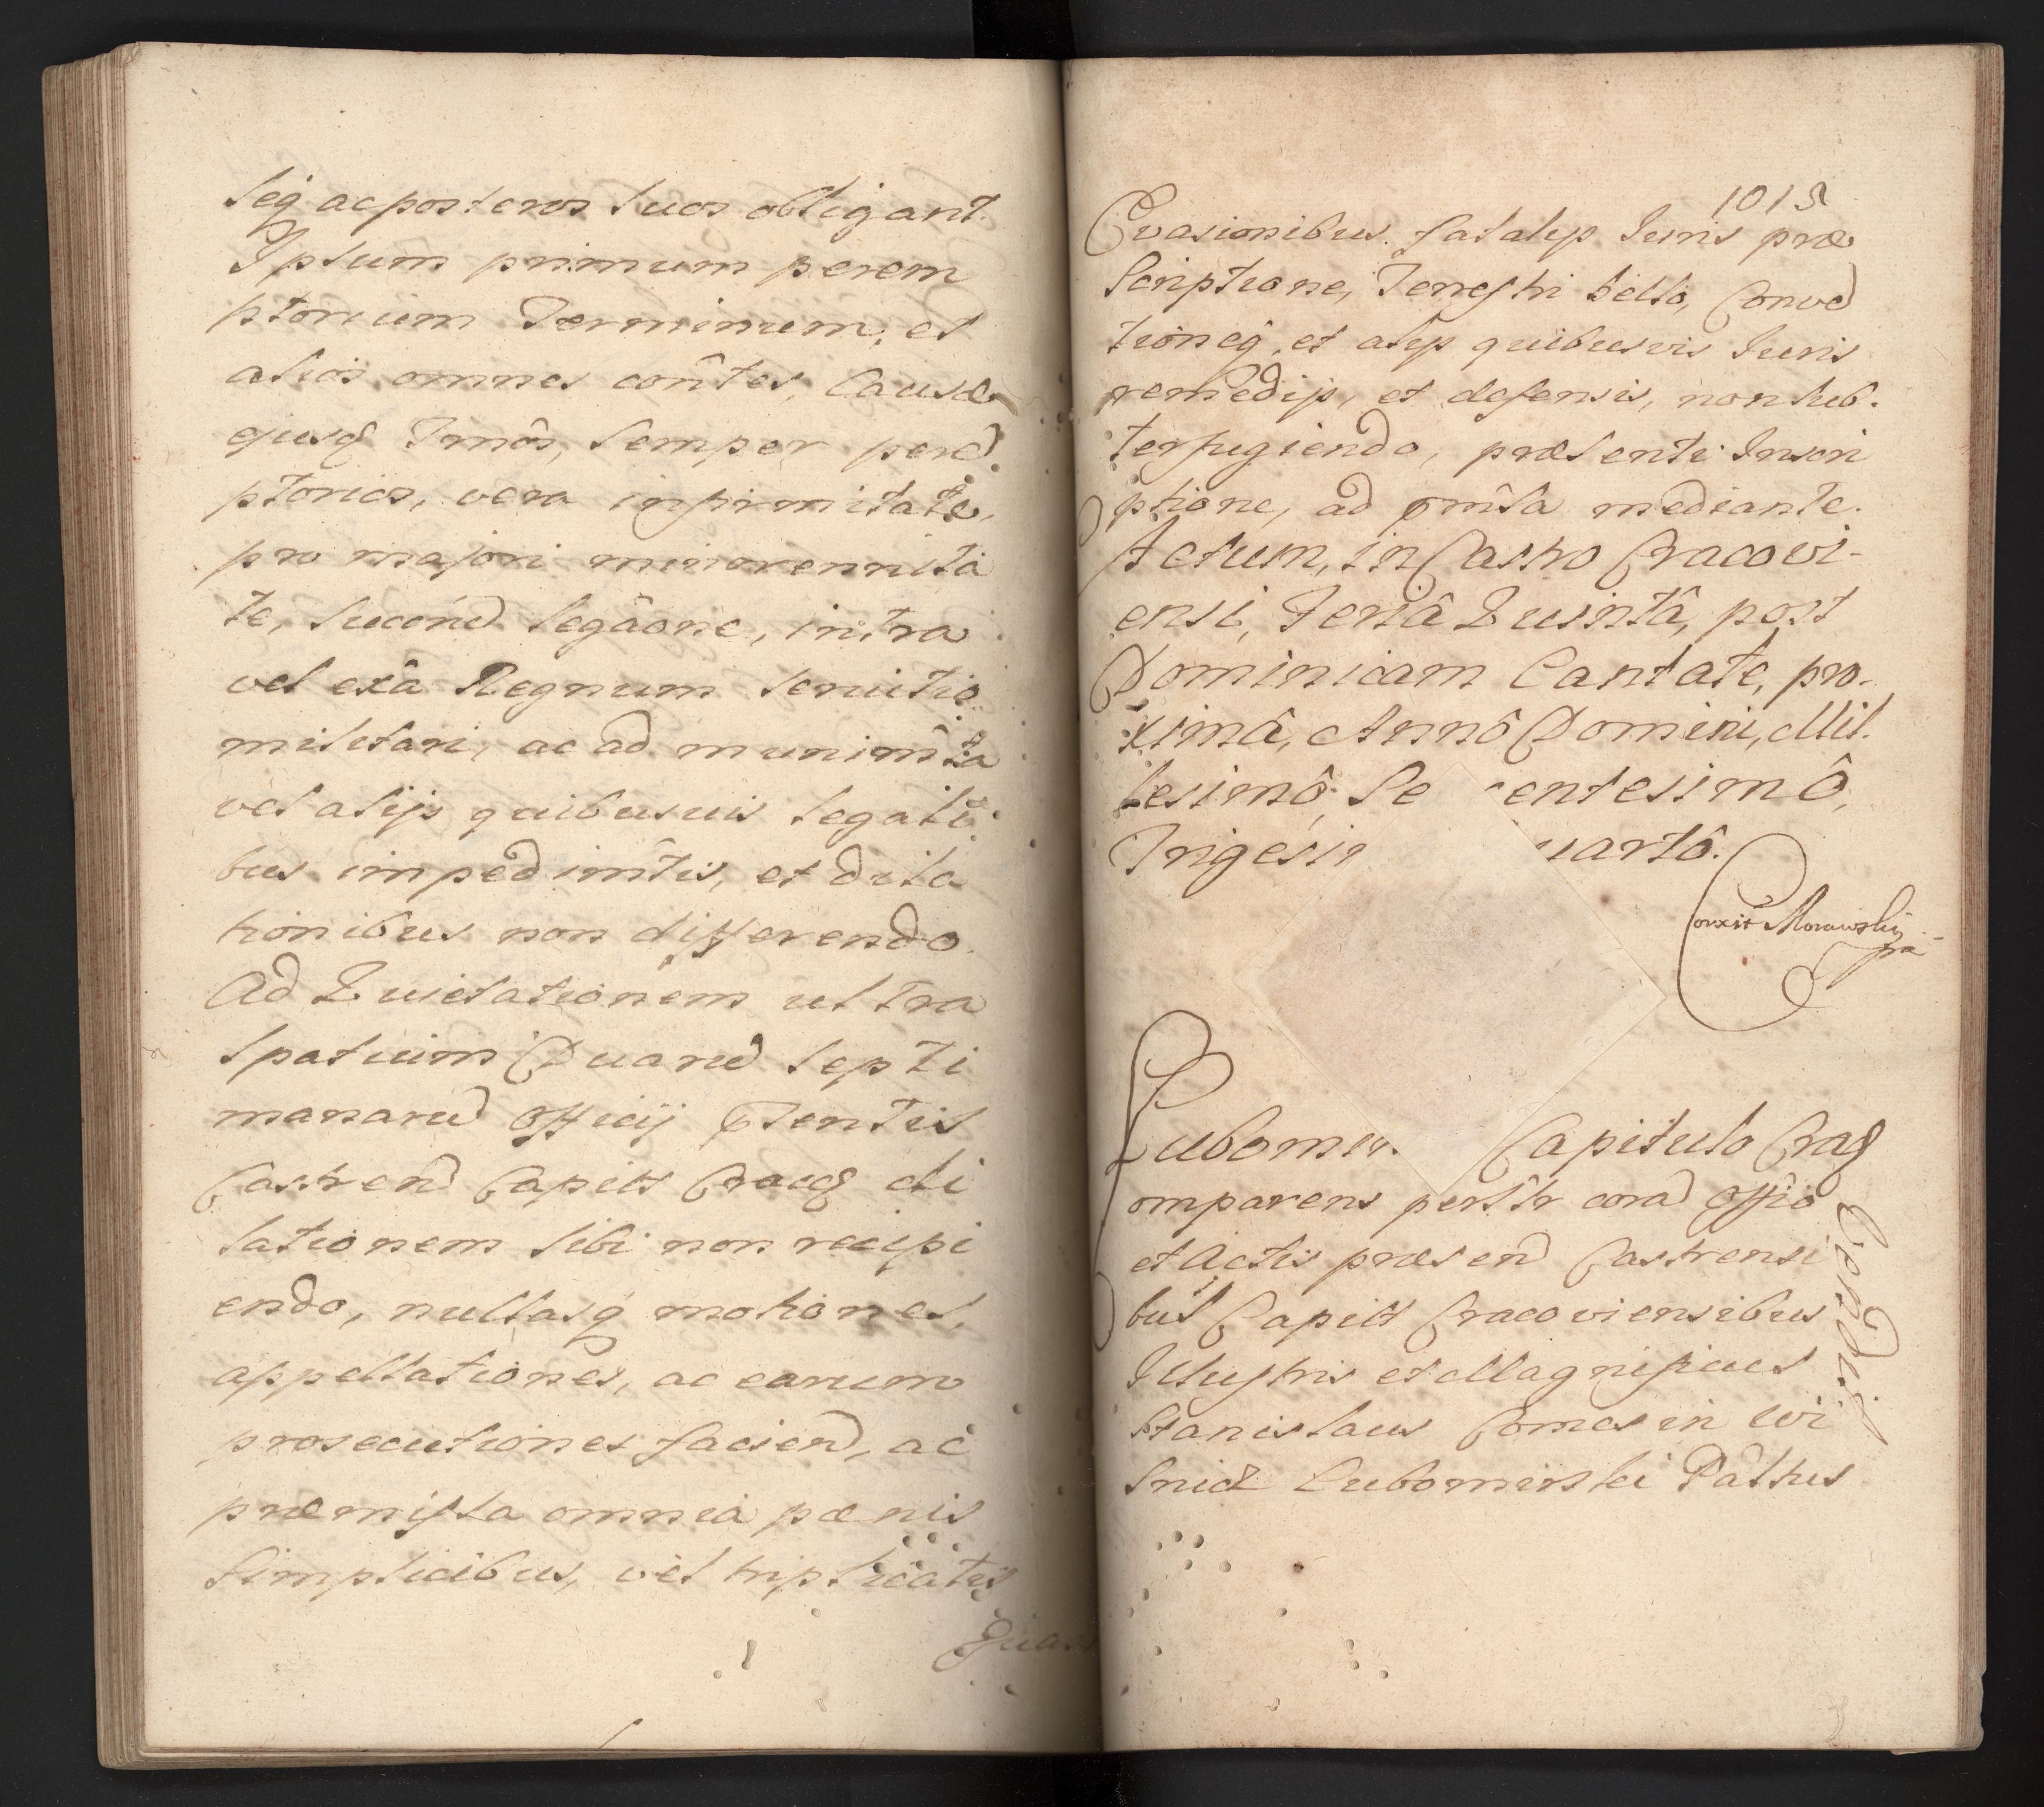 seq̃ ac posteros suos obligant.
Ipsum primum perem
ptorium Terminum, et
alios omnes cont̂es, Causæ
ejusq̃ Tmôs, semper perẽ
ptorios, vera infirmitate,
pro majori minorennita
te, Secund̃ Legâone, intra
vel exâ Regnum servitio
militari, ac ad munim̂ta
vel alijs quibusuis legali
bus impedim̂tis, et dila
tionibus non differendo.
Ad Quietationem ultra
spatium Duarũ septi
manarũ Officij pŝentis
Castren̄ Capitt̃ Craco di
lationem sibi non recipi
endo, nullasq̃ motiones,
appellationes, ac earum
prosecutiones facien̄, ac
præmissa omnia pænis
simplicibus, vel triplicatis
Quas
1015
Evasionibus. fatalijs Juris præ
scriptione, Terrestri bello, Conven̄
tioneq̃, et alijs quibusvis Juris
remedijs, et defensis, non sub.
terfugiendo, præsenti Inscri
ptione, ad præm̂ssa mediante.
Actum, in Castro Cracovi-
ensi, Feriâ Quintâ, post
Dominicam Cantate, pro-
ximâ, Annô Domini, Mil.
lesimô Se entesimô,
Trigesi uartô.
Corrxit Morawski
Lubomir. Capitulo Crac
omparens persl̂r corã Offio
et Actis præsen̄ Castrensi
bus Capitt̃ Cracoviensibus
Illustris et Magnificus
Stanislaus Comes in Wi
snicz Lubomirski Pâl̂tus